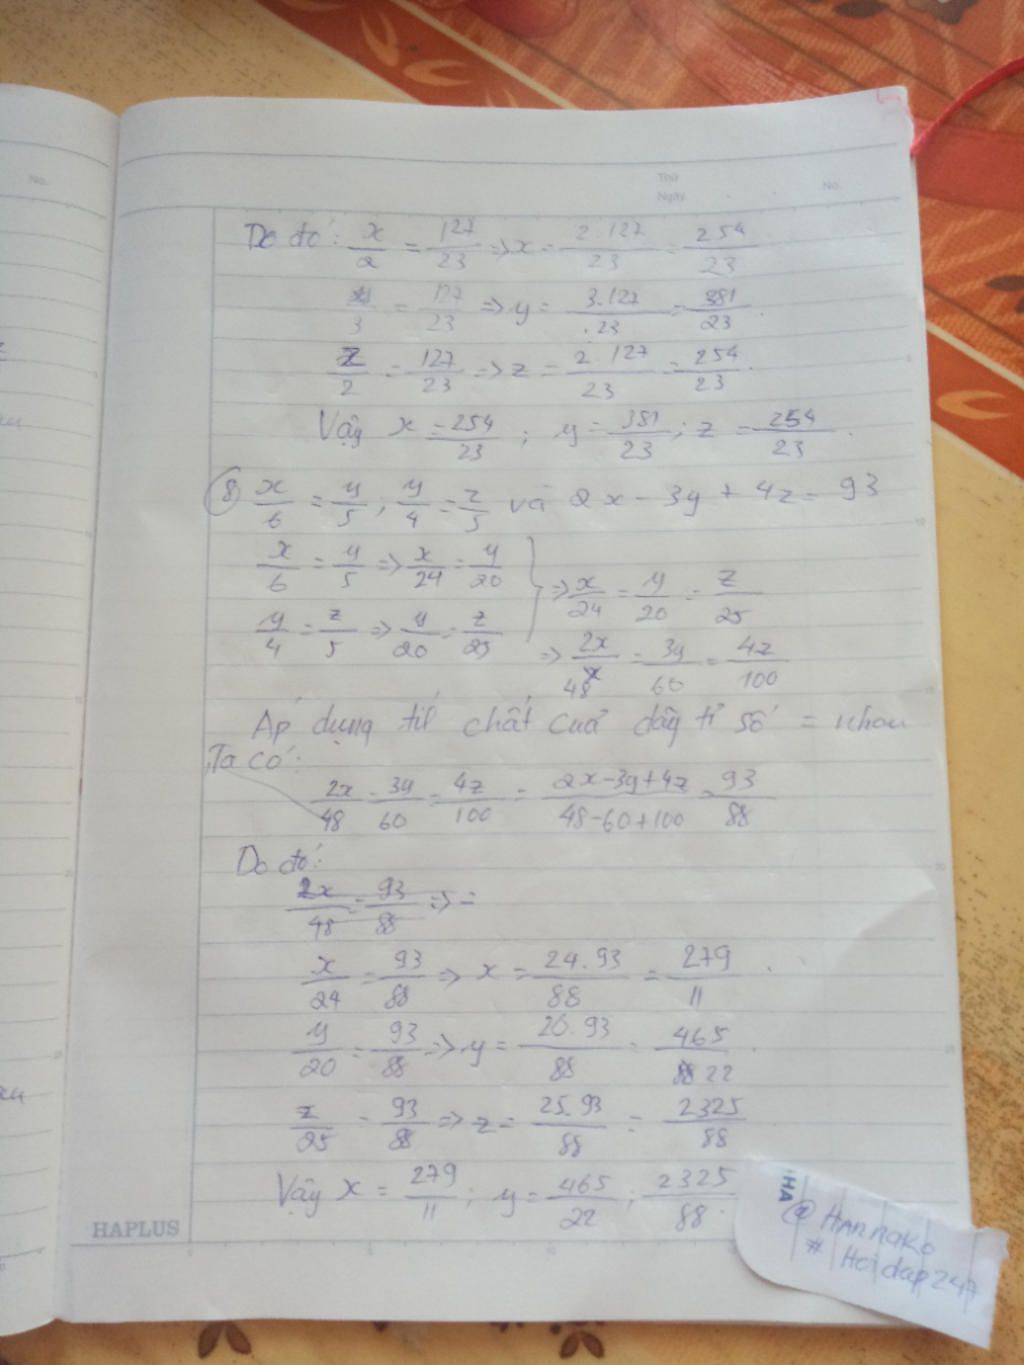 No.
Thứ
Ngày
No.
Do đó: x/2 = 127/23 => x = 2.127/23 = 254/23
y/3 = 127/23 => y = 3.127/23 = 381/23
z/2 = 127/23 => z = 2.127/23 = 254/23
Vậy x = 254/23 ; y = 381/23 ; z = 254/23.
8 x/6 = y/5 ; y/4 = z/5 và 2x - 3y + 4z = 93
x/6 = y/5 => x/24 = y/20
y/4 = z/5 => y/20 = z/25
=> x/24 = y/20 = z/25
=> 2x/48 = 3y/60 = 4z/100
Áp dụng t/c chất của dãy tỉ số = nhau
Ta có:
2x/48 = 3y/60 = 4z/100 = 2x-3y+4z/48-60+100 = 93/88
Do đó:
2x/48 = 93/88 => =
x/24 = 93/88 => x = 24.93/88 = 279/11
y/20 = 93/88 => y = 20.93/88 = 465/22
z/25 = 93/88 => z = 25.93/88 = 2325/88
Vậy x = 279/11 ; y = 465/22 ; 2325/88.
HAPLUS
HA
@HAnnako
# Hoidap247